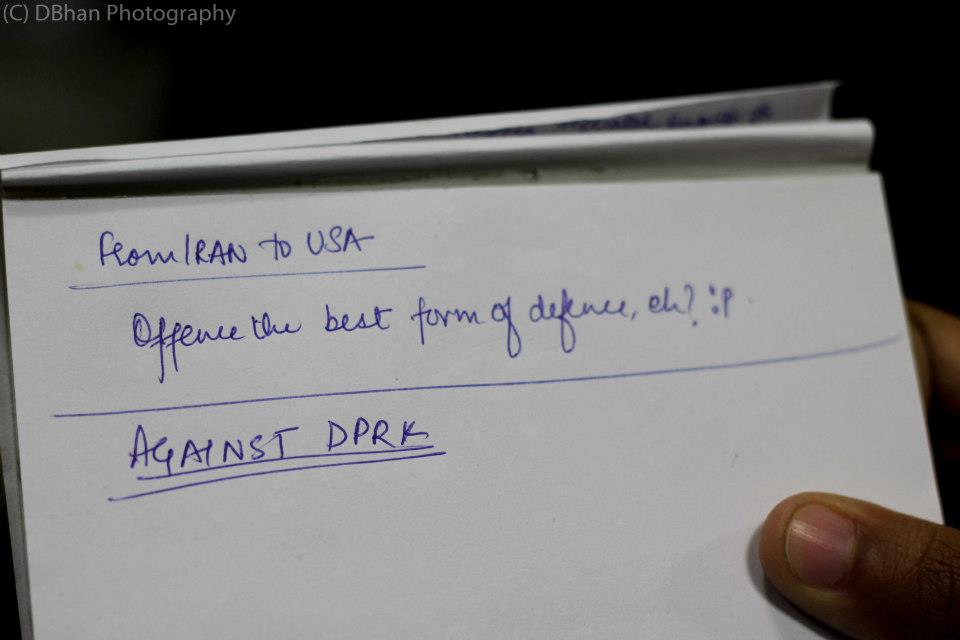 (C) DBhan Photography
From IRAN to USA
Offence the best form of defence, eh? :P
AGAINST DPRK